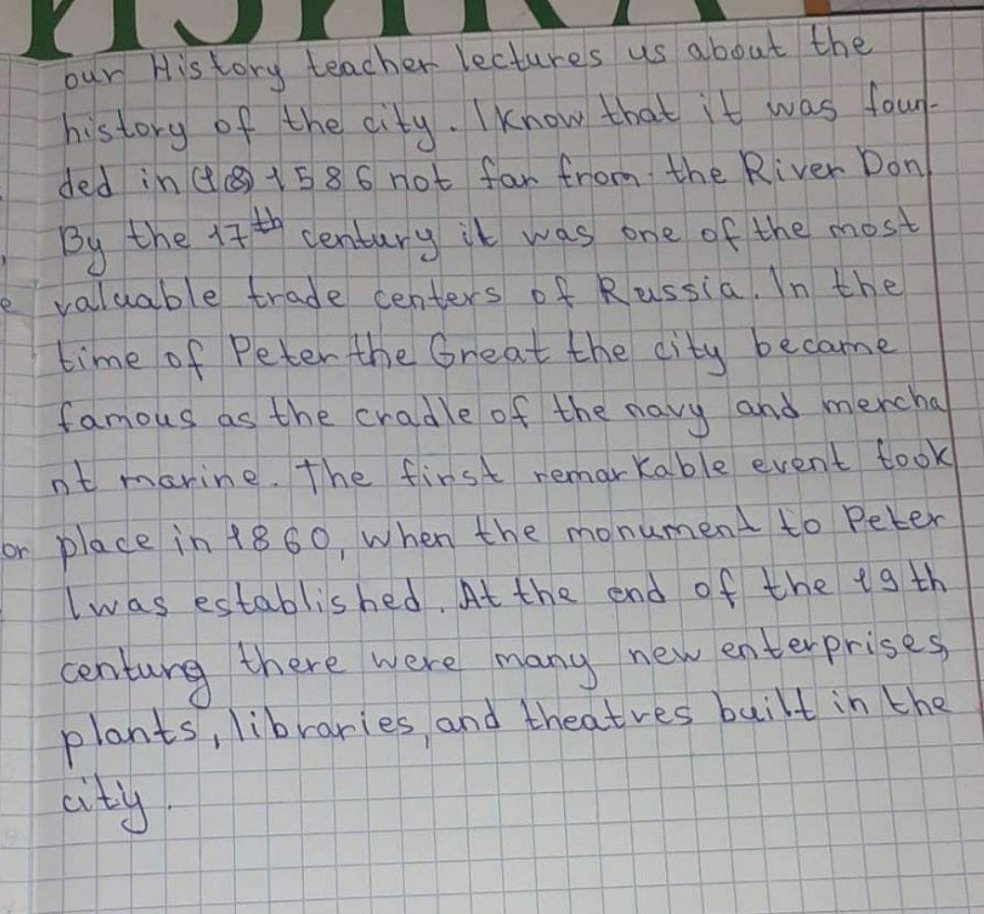 our History teacher lectures us about the
history of the city. I know that it was foun-
ded in (18) 1586 not far from the River Don
By the 17th century it was one of the most
valuable trade centers of Russia. In the
time of Peter the Great the city became
famous as the cradle of the navy and mercha
nt marine. The first remarkable event took
or place in 1860, when the monument to Peter
I was established. At the end of the 19th
century there were many new enterprises,
plants, libraries, and theatres built in the
city.